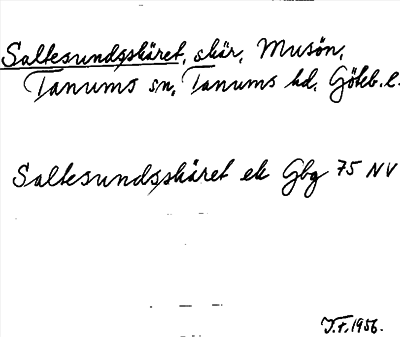 Saltesundsskäret, skär, Musön,
Tanums sn, Tanums hd, Göteb. l.
Saltesundsskäret ek Gbg 75 NV
T.F. 1956.